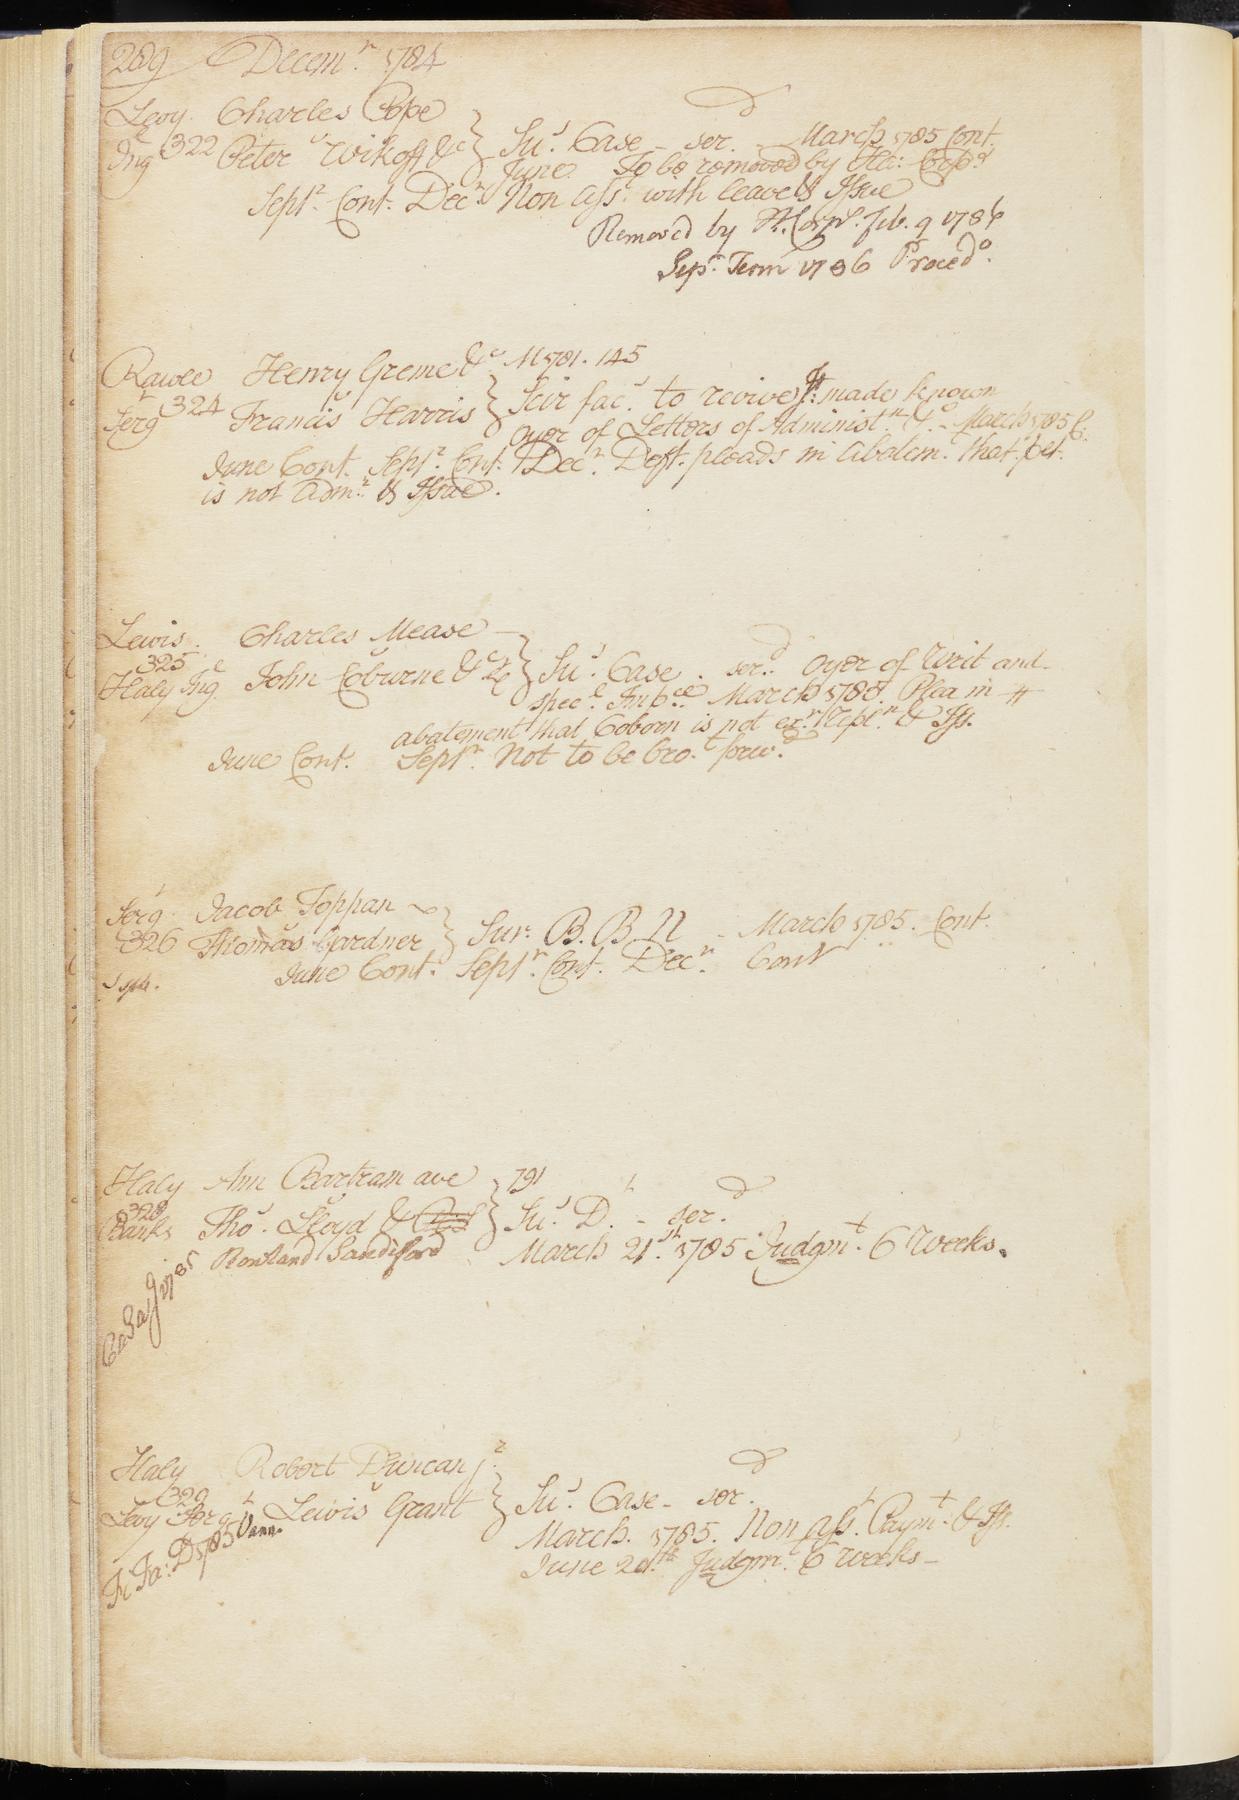 289 Decem.r 1784
Levy Charles Pope
Ing 322 Peter Wikoff &c } Su.s Case - ser. - March 1785 Cont.
June To be removed by Ha: Corp.s
Sept.r Cont. Dec.r Non Ass. with leave & Issue
Removed by H. Corp.s Feb. 9 1786
Sep.r Term 1786 Proced.o
Rawle Henry Greme &c M 1781. 145
Serg 324 Francis Harris } Scir fac.s to revive made known
Oyer of Letters of Administ.n &c - March 1785 C:
June Cont. Sept.r Cont. Dec.r Deft. pleads in Abatem. that plt.
is not Adm.r & Issue.
Lewis. Charles Mease
325
Haly Ing John Coburne &c } Su.s Case. ser.d Oyer of Writ and
spec.l Imp.ce March 1785. Plea in
abatement that Coborn is not ex.r Repl.n & Iss.
June Cont. Sept.r Not to be bro.t forw.d
Serg Jacob Toppan
326 Thomas Gardner } Sur. B. B N - March 1785. Cont.
June Cont. Sept.r Cont. Dec.r Cont
Haly Ann Bartram 791
328
Banks Tho.s Lloyd & } Su.s D. - ser.
Rowland Sandiford March 21.st 1785 Judgm.t 6 Weeks.
Ca Sa J 1785
Haly Robert Duncan j.r
329
Levy Serg Lewis Grant } Su.s Case - ser.
March. 1785. Non Ass. Paym.t & Iss.
Fi Fa: D 1785
June 20.th Judgm.t 6 Weeks -